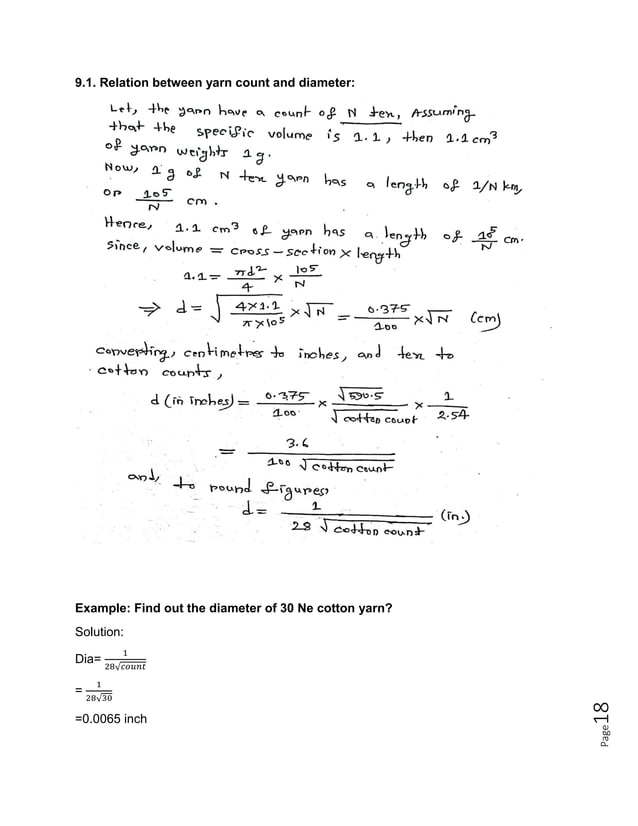 9.1. Relation between yarn count and diameter:
Let, the yarn have a count of N tex, Assuming
that the specific volume is 1.1, then 1.1 cm³
of yarn weights 1 g.
Now, 1 g of N tex yarn has a length of 1/N km,
or 10⁵/N cm.
Hence, 1.1 cm³ of yarn has a length of 10⁵/N cm.
Since, volume = cross-section × length
1.1 = πd²/4 × 10⁵/N
⇒ d = √(4×1.1/π×10⁵) × √N = 0.375/100 × √N (cm)
converting, centimetres to inches, and tex to
cotton counts,
d (in inches) = 0.375/100 × √590.5/√cotton count × 1/2.54
= 3.6/100 √cotton count
and, to round figures,
d = 1/28 √cotton count (in.)
Example: Find out the diameter of 30 Ne cotton yarn?
Solution:
Dia= 1/28√count
= 1/28√30
=0.0065 inch
Page 18